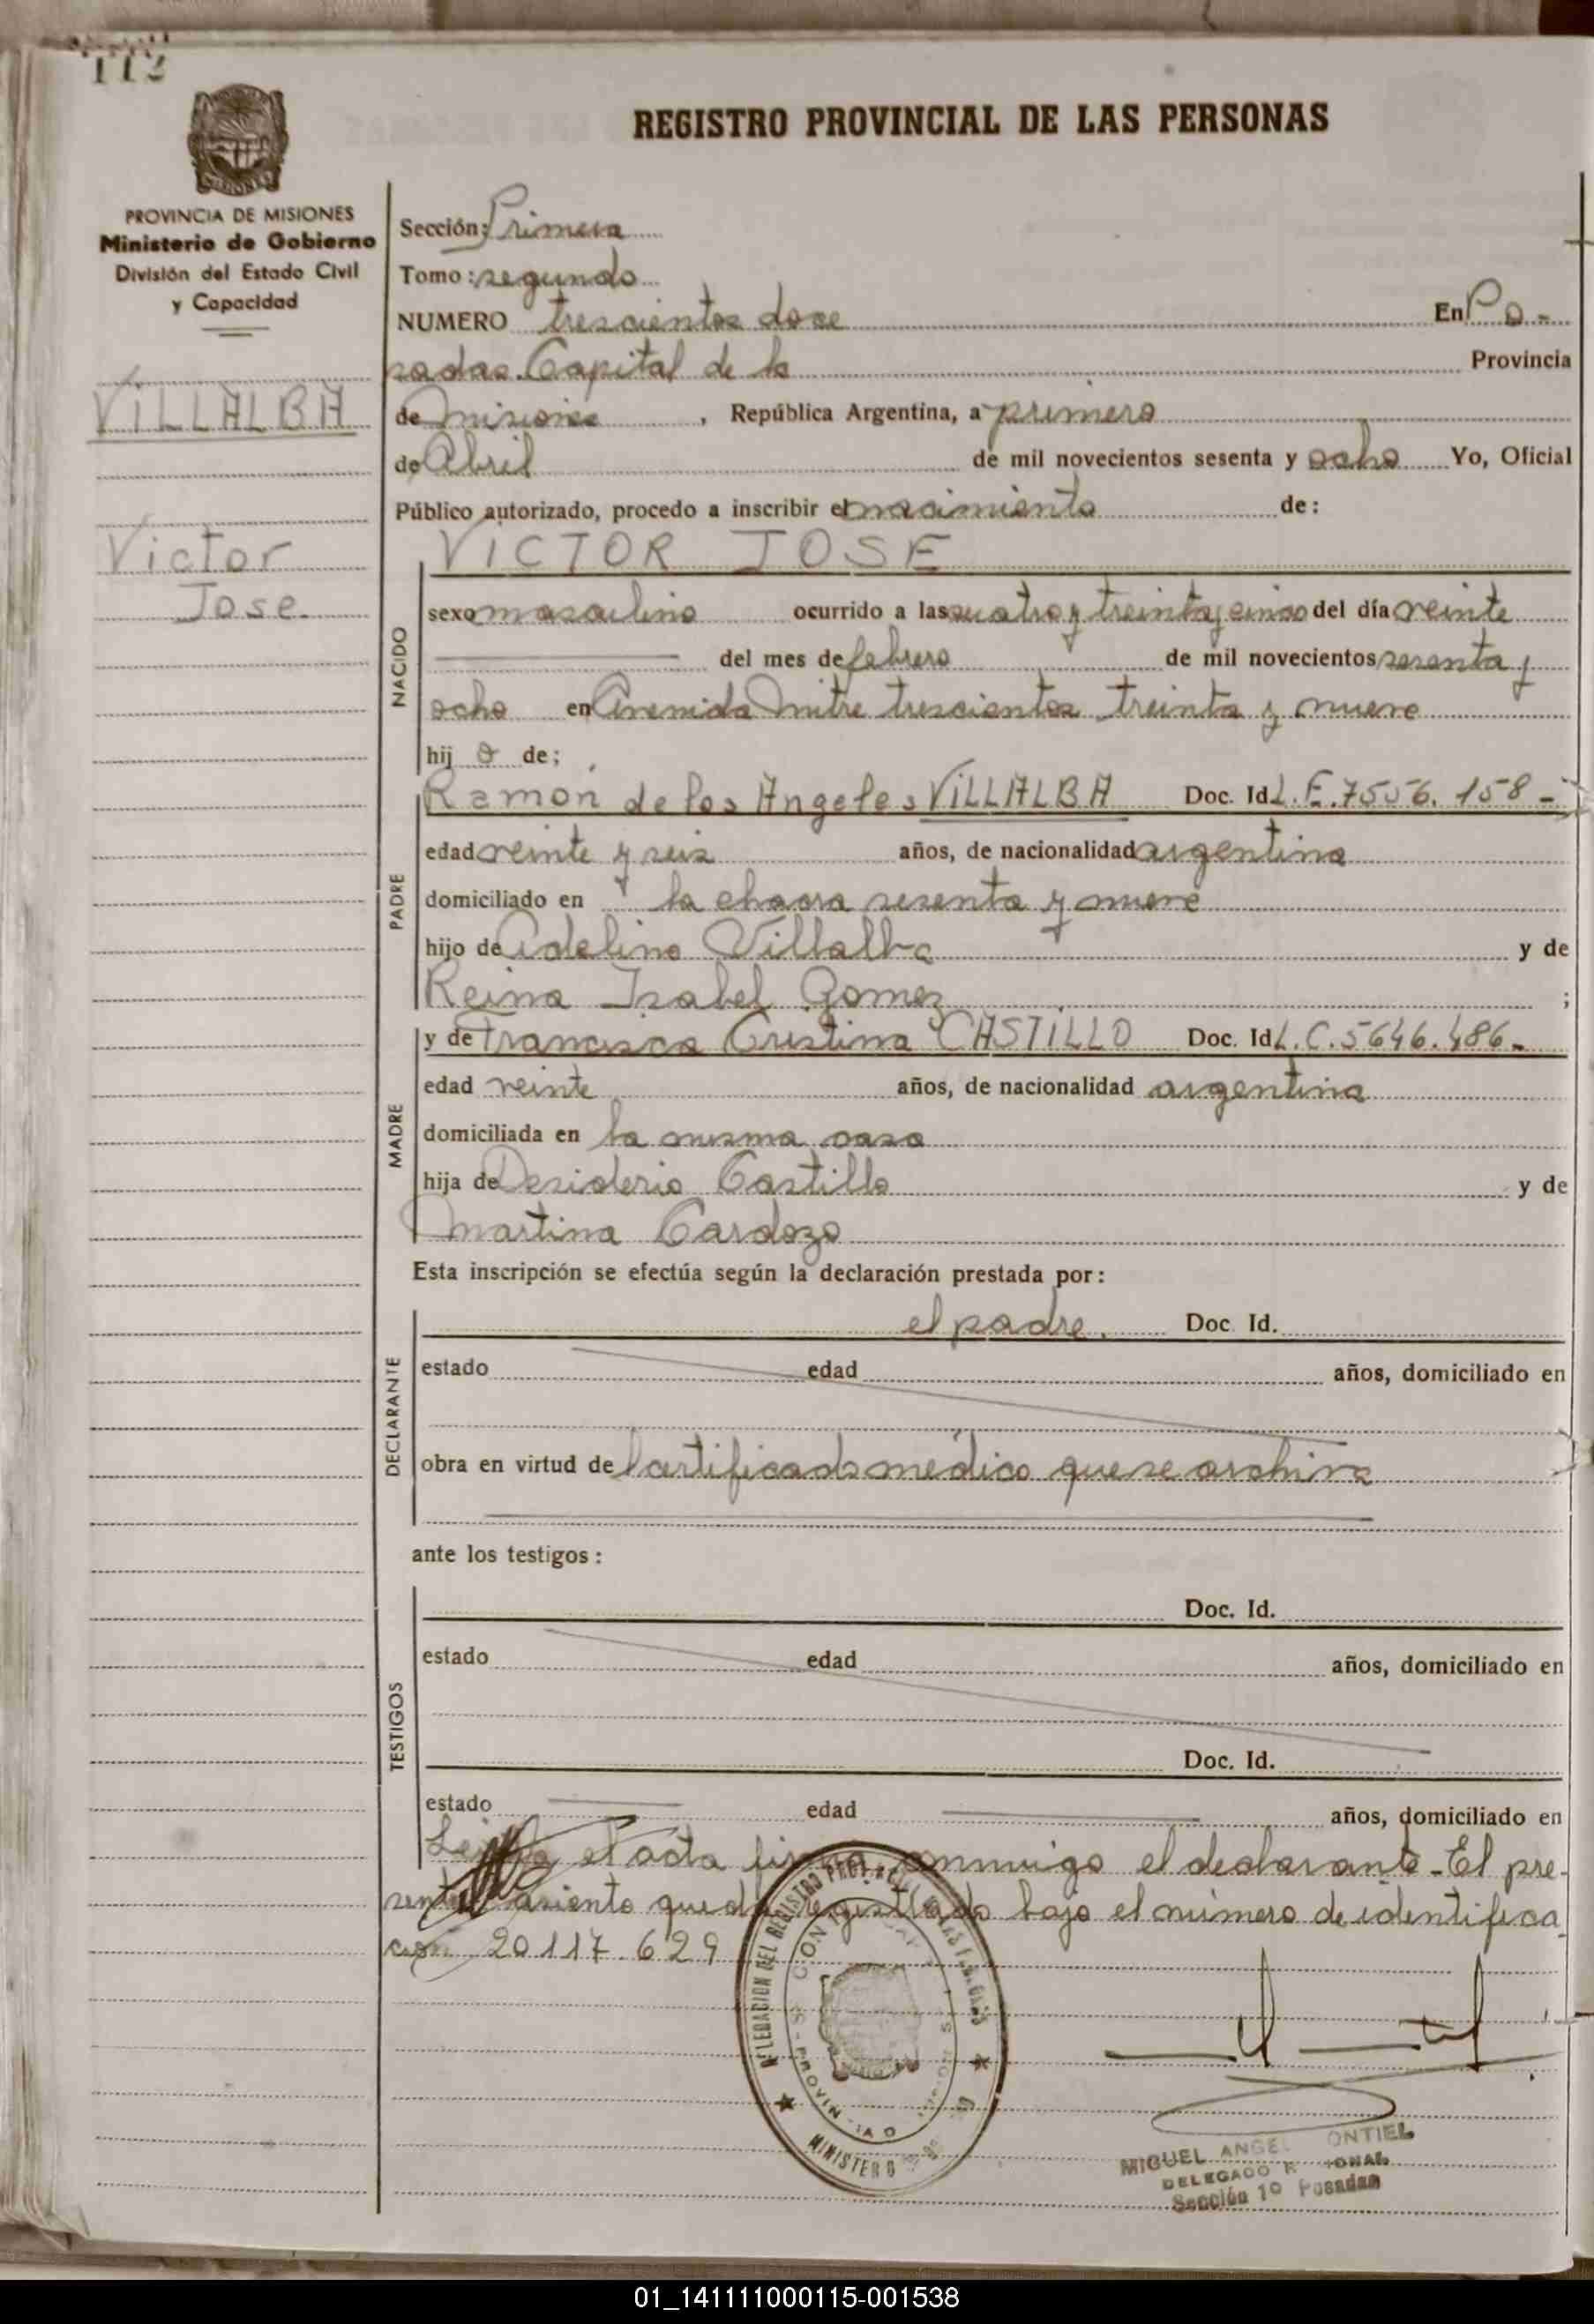 112
REGISTRO PROVINCIAL DE LAS PERSONAS
PROVINCIA DE MISIONES
Ministerio de Gobierno
División del Estado Civil
y Capacidad
VILLALBA
Victor
Jose
Sección: Primera
Tomo: segundo
NUMERO trescientos doce En Po-
sadas. Capital de la Provincia
de misiones, República Argentina, a primero
de Abril de mil novecientos sesenta y ocho Yo, Oficial
Público autorizado, procedo a inscribir el nacimiento de:
VICTOR JOSE
NACIDO
sexo masculino ocurrido a las cuatro y treinta y cinco del día veinte
del mes de febrero de mil novecientos sesenta y
ocho en Avenida mitre trescientos treinta y nueve
hij o de;
PADRE
Ramón de los Angeles VILLALBA Doc. Id. L.E. 7556.158-
edad veinte y seis años, de nacionalidad argentina
domiciliado en la chacra sesenta y nueve
hijo de Adelino Villalba y de
Reina Isabel Gomez ;
MADRE
y de Francisca Cristina CASTILLO Doc. Id. L.C. 5646.486-
edad veinte años, de nacionalidad argentina
domiciliada en la misma casa
hija de Desiderio Castillo y de
Martina Cardozo
Esta inscripción se efectúa según la declaración prestada por:
DECLARANTE
el padre. Doc. Id.
estado edad años, domiciliado en
obra en virtud del certificado médico que se archiva
ante los testigos:
TESTIGOS
Doc. Id.
estado edad años, domiciliado en
Doc. Id.
estado edad años, domiciliado en
Leída el acta firma conmigo el declarante-El pre-
sente asiento queda registrado bajo el número de identifica
ción 20117.629
DELEGACION DEL REGISTRO
MINISTERO
MIGUEL ANGEL ONTIEL
DELEGADO
Sección 1º Posadas
01_141111000115-001538